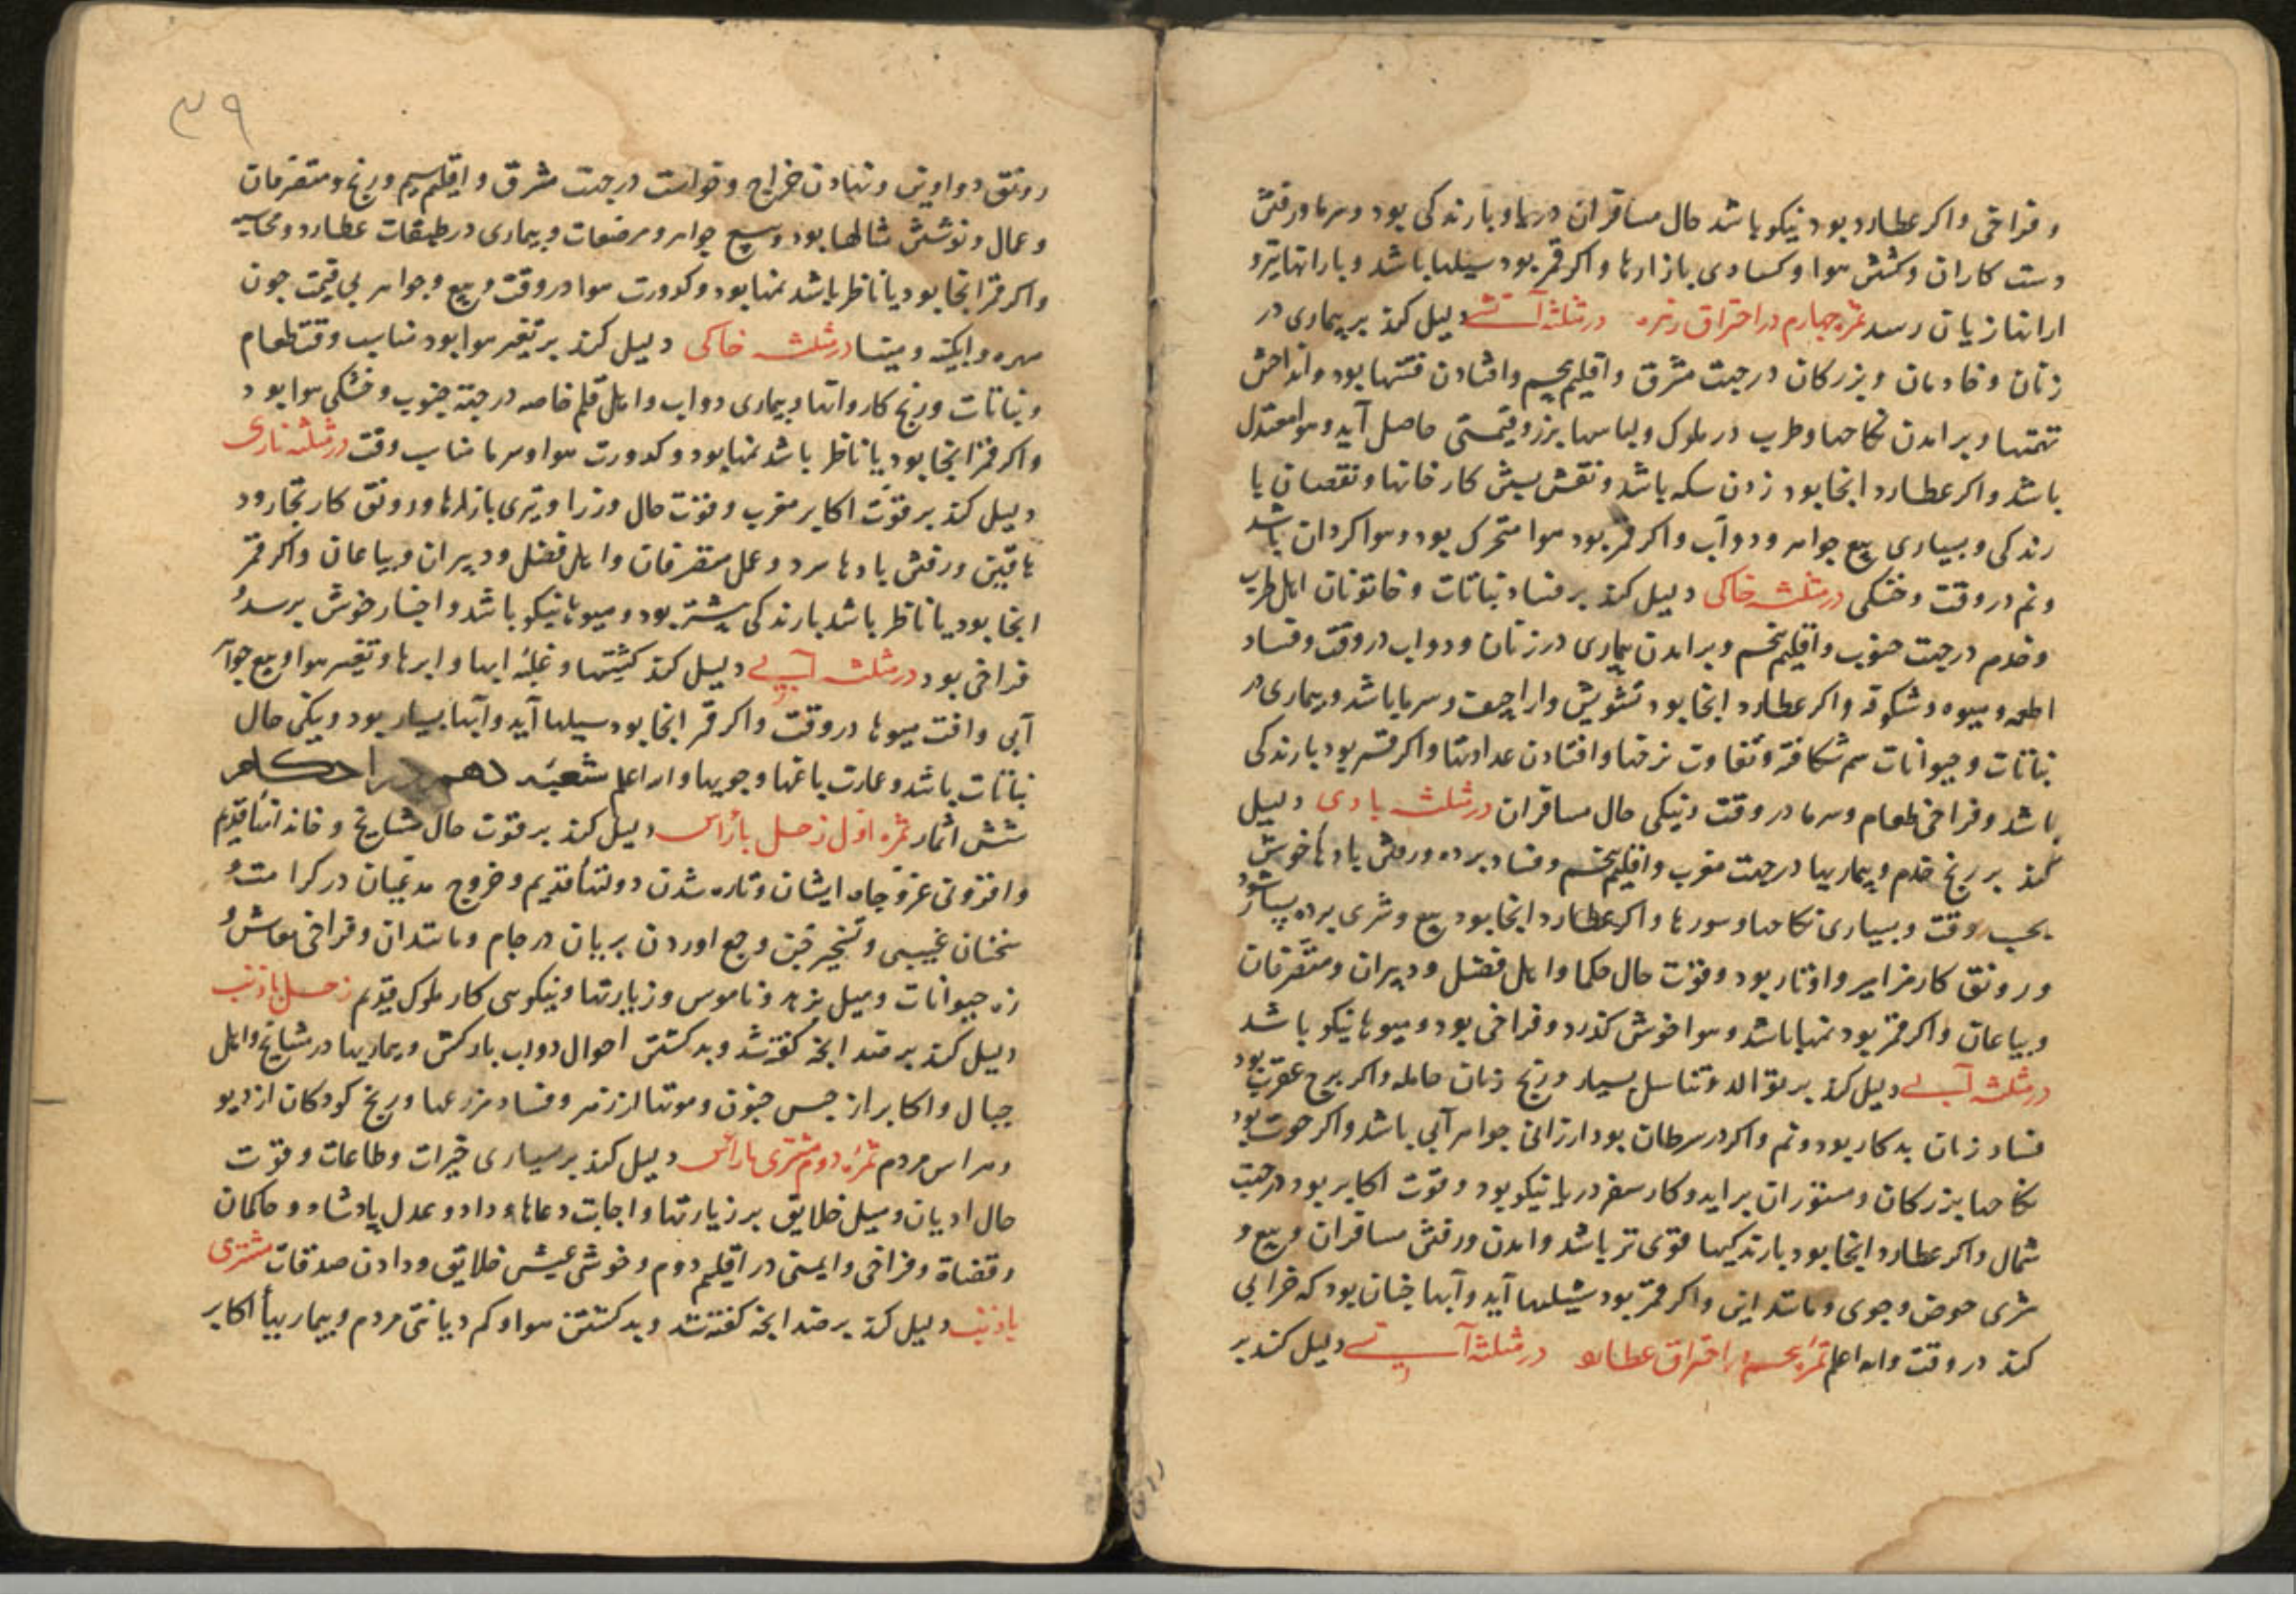 و فراخی و اکر عطارد بود نیکو باشد حال مسافران دریا و بارندکی بود و سرما و رفتن
دست کاران و کشش هوا و کسادی بازارها و اکر قمر بود سیلها باشد و بارانها بترو
ارانها زیان رسد ثمره چهارم در احتراق زهره در مثلثه آتشی دلیل کند بر بیماری در
زنان و خادمان و بزرکان در جهت مشرق و اقلیم پنجم و افتادن فتنها بود و انداختن
تهمتها و برامدن نکاحها و طرب در ملوک و لباسها بزر و قیمتی حاصل آید و هوا معتدل
باشد و اکر عطارد انجا بود زدن سکه باشد و نقش بستن کارخانها و نقصان با
رندکی و بسیاری بیع جواهر و دوآب و اکر قمر بود هوا متحرک بود و هوا کردان باشد
و نم در وقت و خشکی در مثلثه خاکی دلیل کند بر فساد نباتات و خاتونان اهل طرب
و خدم در جهت جنوب و اقلیم پنجم و برامدن بیماری در زنان و دواب در وقت و فساد
اطعمه و میوه و شکوفه و اکر عطارد انجا بود تشویش و اراجیف و سرما باشد و بیماری در
نباتات و حیوانات سم شکافته و تفاوت نرخها و افتادن عداوتها و اکر قمر بود بارندکی
باشد و فراخی طعام و سرما در وقت و نیکی حال مسافران در مثلثه بادی دلیل
کند بر رنج خدم و بیماریها در جهت مغرب و اقلیم پنجم و فساد برده و رفتن بادها خوش
بحسب وقت و بسیاری نکاحها و سورها و اکر عطارد انجا بود بیع و شری برده بسیار شود
و رونق کار مزامیر و اوتار بود و قوت حال حکما و اهل فضل و دبیران و متصرفان
و بیاعان و اکر قمر بود نمها باشد و هوا خوش کذرد و فراخی بود و میوها نیکو باشد
در مثلثه آبی دلیل کند بر توالد و تناسل بسیار و رنج زنان حامله و اکر برج عقرب بود
فساد زنان بدکار بود و نم و اکر در سرطان بود ارزانی جواهر آبی باشد و اکر حوت بود
نکاحها بزرکان و مستوران براید و کار سفر دریا نیکو بود و قوت اکابر بود در جهت
شمال و اکر عطارد انجا بود بارندکیها قوی تر باشد و امدن و رفتن مسافران و بیع و
شری حوض و جوی و مانند این و اکر قمر بود سیلها آید و آبها چنان بود که خرابی
کند در وقت والله اعلم ثمره پنجم در احتراق عطارد در مثلثه آتشی دلیل کند بر
۳۹
رونق دواوین و نهادن خراج و خواست در جهت مشرق و اقلیم سیم و رنج و متصرفان
و عمال و نوشتن مثالها بود و بیع جواهر و مرضعات و بیماری در طبقات عطارد و محاسبه
و اکر قمر انجا بود یا ناظر باشد نمها بود و کدورت هوا در وقت و بیع و جواهر بی قیمت چون
مهره و ابکینه و مینا در مثلثه خاکی دلیل کند بر تغیر هوا بود مناسب وقت طعام
و نباتات و رنج کاروانها و بیماری دواب و اهل قلم خاصه در جهة جنوب و خشکی هوا بود
و اکر قمر انجا بود یا ناظر باشد نمها بود و کدورت هوا و سرما مناسب وقت در مثلثه ناری
دلیل کند بر قوت اکابر مغرب و قوت حال وزرا و تیزی بازارها و رونق کار تجار و د
هاقین و رفتن بادها سرد و عمل متصرفان و اهل فضل و دبیران و بیاعان و اکر قمر
انجا بود یا ناظر باشد بارندکی بیشتر بود و میوها نیکو باشد و اخبار خوش برسد و
فراخی بود در مثلثه آبی دلیل کند کشتیها و غلبه ابها و ابرها و تغیر هوا و بیع جواهر
آبی و افت میوها در وقت و اکر قمر انجا بود سیلها آید و آبها بسیار بود و نیکی حال
نباتات باشد و عمارت باغها و جویها والله اعلم شعبه دهم در احکام
شش اثمار ثمره اول زحل بارأس دلیل کند بر قوت حال مشایخ و خاندانها قدیم
و افزونی عز و جاه ایشان و تازه شدن دولتها قدیم و خروج مدعیان در کرامت و
سخنان غیبی و تسخیر جن و جمع اوردن پریان در جام و مانند ان و فراخی معاش و
زه حیوانات و میل بزهد و ناموس و زیارتها و نیکویی کار ملوک قدیم زحل باذنب
دلیل کند بر ضد انچه کفته شد و بد کشتن احوال دواب بارکش و بیماریها در مشایخ و اهل
جبال و اکابر از جنس جنون و موتها از زهر و فساد مزرعها و رنج کودکان از دیو
و هراس مردم ثمره دوم مشتری بارأس دلیل کند بر بسیاری خیرات و طاعات و قوت
حال ادیان و میل خلایق بر زیارتها و اجابت دعاها و داد و عدل پادشاه و حاکمان
و قضاة و فراخی و ایمنی در اقلیم دوم و خوشی عیش خلایق و دادن صدقات مشتری
باذنب دلیل کند بر ضد انچه کفته شد و بد کشتن هوا و کم دیانتی مردم و بیماریها اکابر